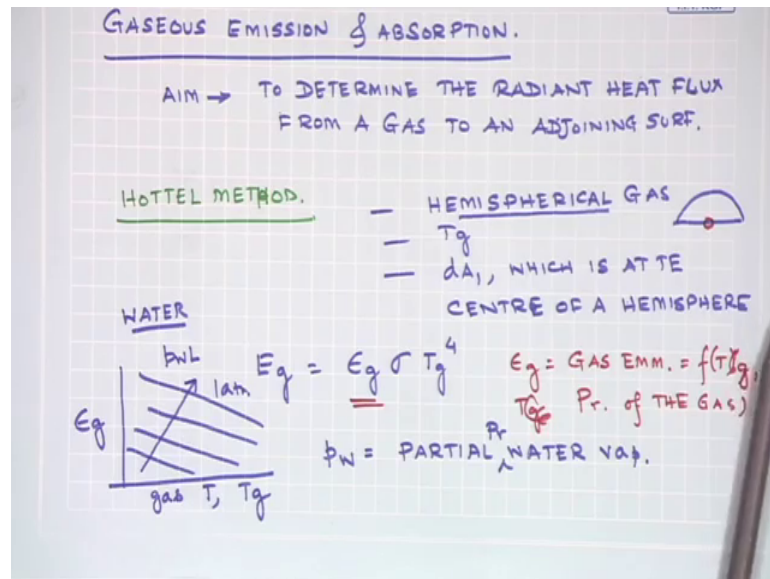 GASEOUS EMISSION & ABSORPTION.
AIM → TO DETERMINE THE RADIANT HEAT FLUX
FROM A GAS TO AN ADJOINING SURF.
HOTTEL METHOD.
— HEMISPHERICAL GAS
— Tg
— dA₁, WHICH IS AT TE
CENTRE OF A HEMISPHERE
WATER
pwL
1atm
Єg
gas T, Tg
Eg = Єg σ Tg⁴
Єg = GAS EMM. = f(T)g,
Tg Pr. of THE GAS)
pw = PARTIAL Pr WATER vap.